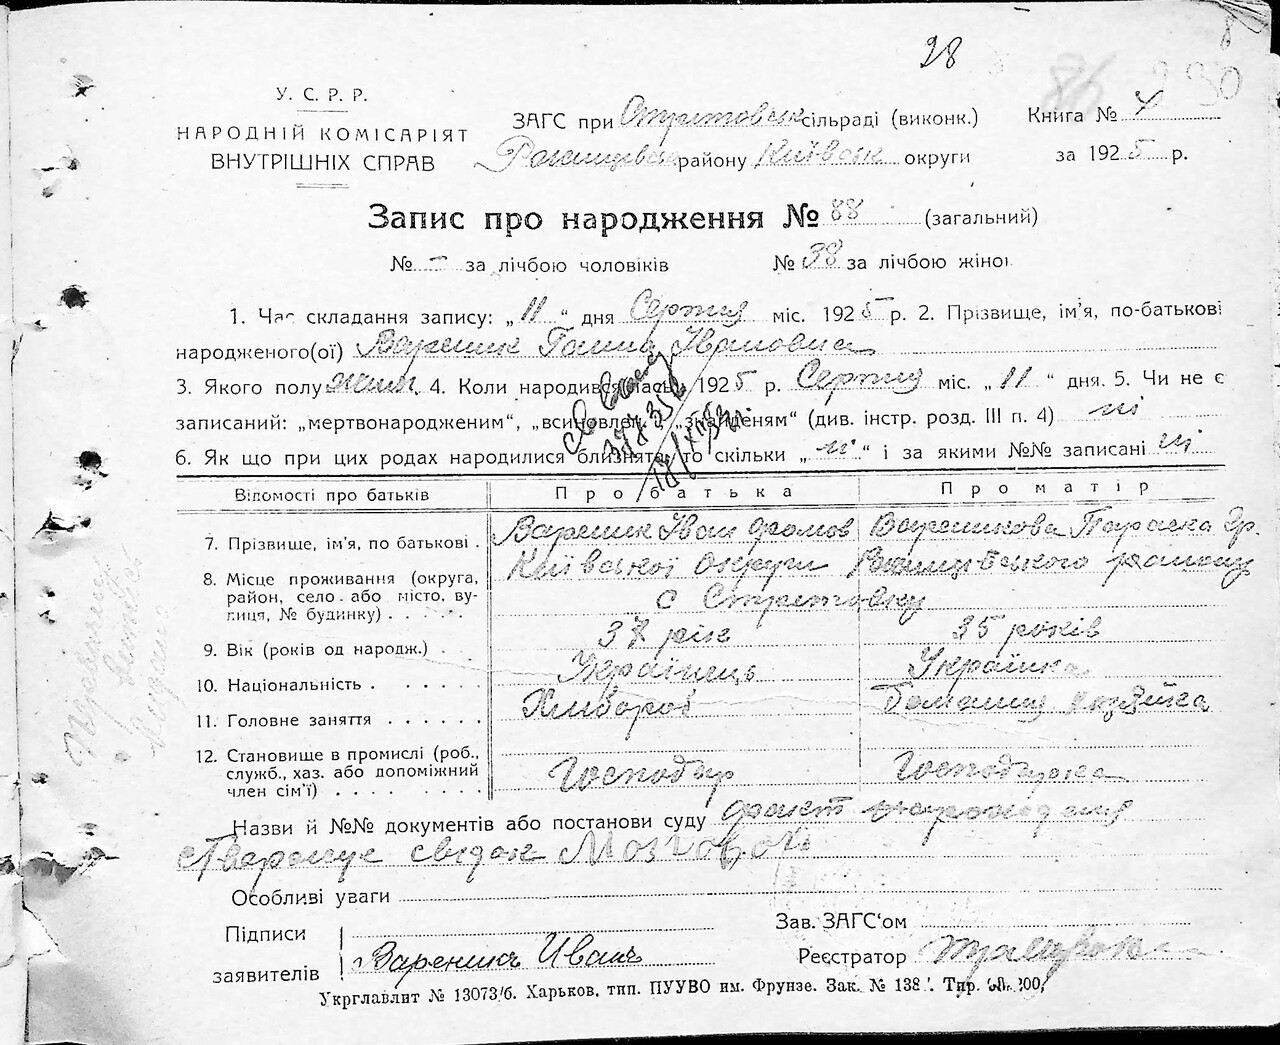 28
8
86 230
У. С. Р. Р.
НАРОДНІЙ КОМІСАРІЯТ
ВНУТРІШНІХ СПРАВ
ЗАГС при Стритовськ сільраді (виконк.)
району Київськ округи
Книга № 4
за 1925 р.
Запис про народження № 88 (загальний)
№ – за лічбою чоловіків № 38 за лічбою жіно
1. Час складання запису: „11“ дня Серпня міс. 1925 р. 2. Прізвище, ім’я, по-батькові
народженого(ої) Вареник Ганна Івановна
3. Якого полу жін. 4. Коли народився 1925 р. Серпня міс. „11“ дня. 5. Чи не є
записаний: „мертвонародженим“, „всиновлен. „знайденям“ (див. інстр. розд. III п. 4) ні
6. Як що при цих родах народилися близнята, то скільки „ні“ і за якими №№ записані ні
Відомості про батьків Про батька Про матір
7. Прізвище, ім’я, по батькові . Вареник Іван Вареникова Параска Гр.
8. Місце проживання (округа, район, село або місто, вулиця, № будинку) . . . . . Київської округи району
с Стритовку
9. Вік (років од народж.) . . 37 рік 35 років
10. Національність . . . . . . Українець Українка
11. Головне заняття . . . . . . Хлибороб Домашня хозяйка
12. Становище в промислі (роб., служб., хаз. або допоміжний член сім’ї) . . . . . . . . Господар Господарка
Назви й №№ документів або постанови суду факт народження
ствержує свідок
Особливі уваги
Підписи
заявителів Вареникъ Иванъ
Зав. ЗАГС‘ом
Реєстратор
Укрглавлит № 13073/б. Харьков, тип. ПУУВО им. Фрунзе. Зак. № 138